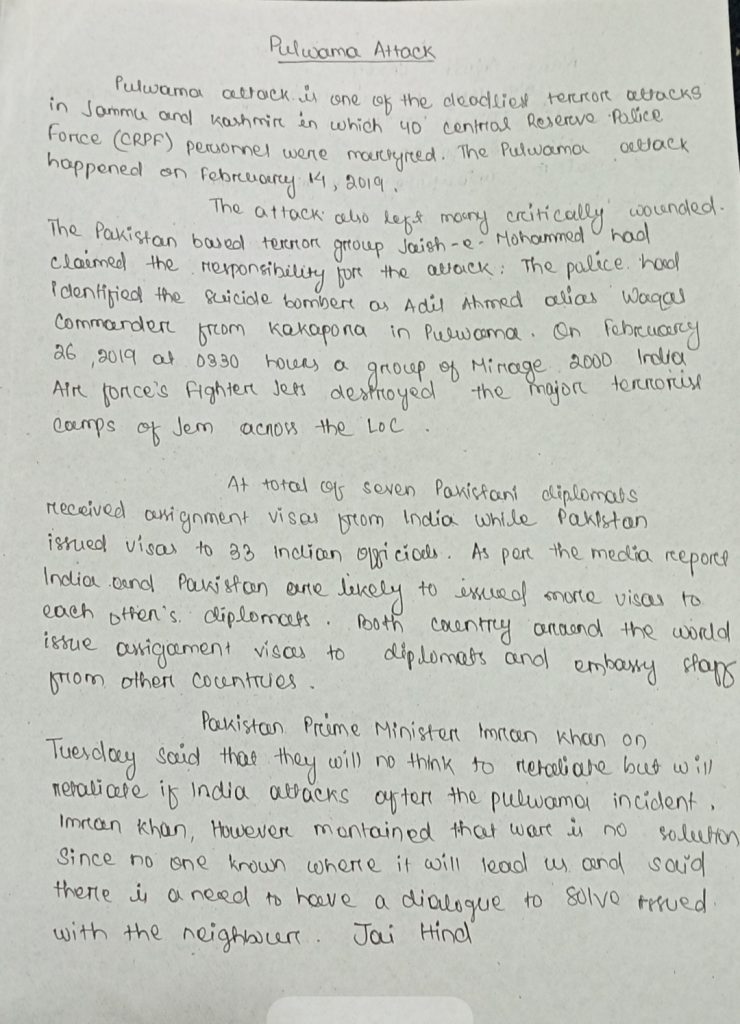 Pulwama Attack
Pulwama attack is one of the deadliest terror attacks
in Jammu and Kashmir in which 40 central Reserve Police
Force (CRPF) personnel were martyred. The Pulwama attack
happened on February 14, 2019.
The attack also left many critically wounded.
The Pakistan based terror group Jaish-e-Mohammed had
claimed the responsibility for the attack. The palice had
identified the suicide bomber as Adil Ahmed alias Waqas
Commander from Kakapora in Pulwama. On February
26, 2019 at 0330 hours a group of Mirage 2000 India
Air force's Fighter Jets destroyed the major terrorist
camps of Jem across the LOC.
At total of seven Pakistani diplomats
received assignment visas from India while Pakistan
issued visas to 33 Indian officials. As per the media report
India and Pakistan are likely to issued more visas to
each other's diplomats. Both country around the world
issue assignment visas to diplomats and embassy staff
from other countries.
Pakistan Prime Minister Imran Khan on
Tuesday said that they will no think to retaliate but will
retaliate if India attacks after the pulwama incident.
Imran Khan, However mantained that war is no solution
Since no one known where it will lead us and said
there is a need to have a dialogue to solve issued
with the neighbour. Jai Hind